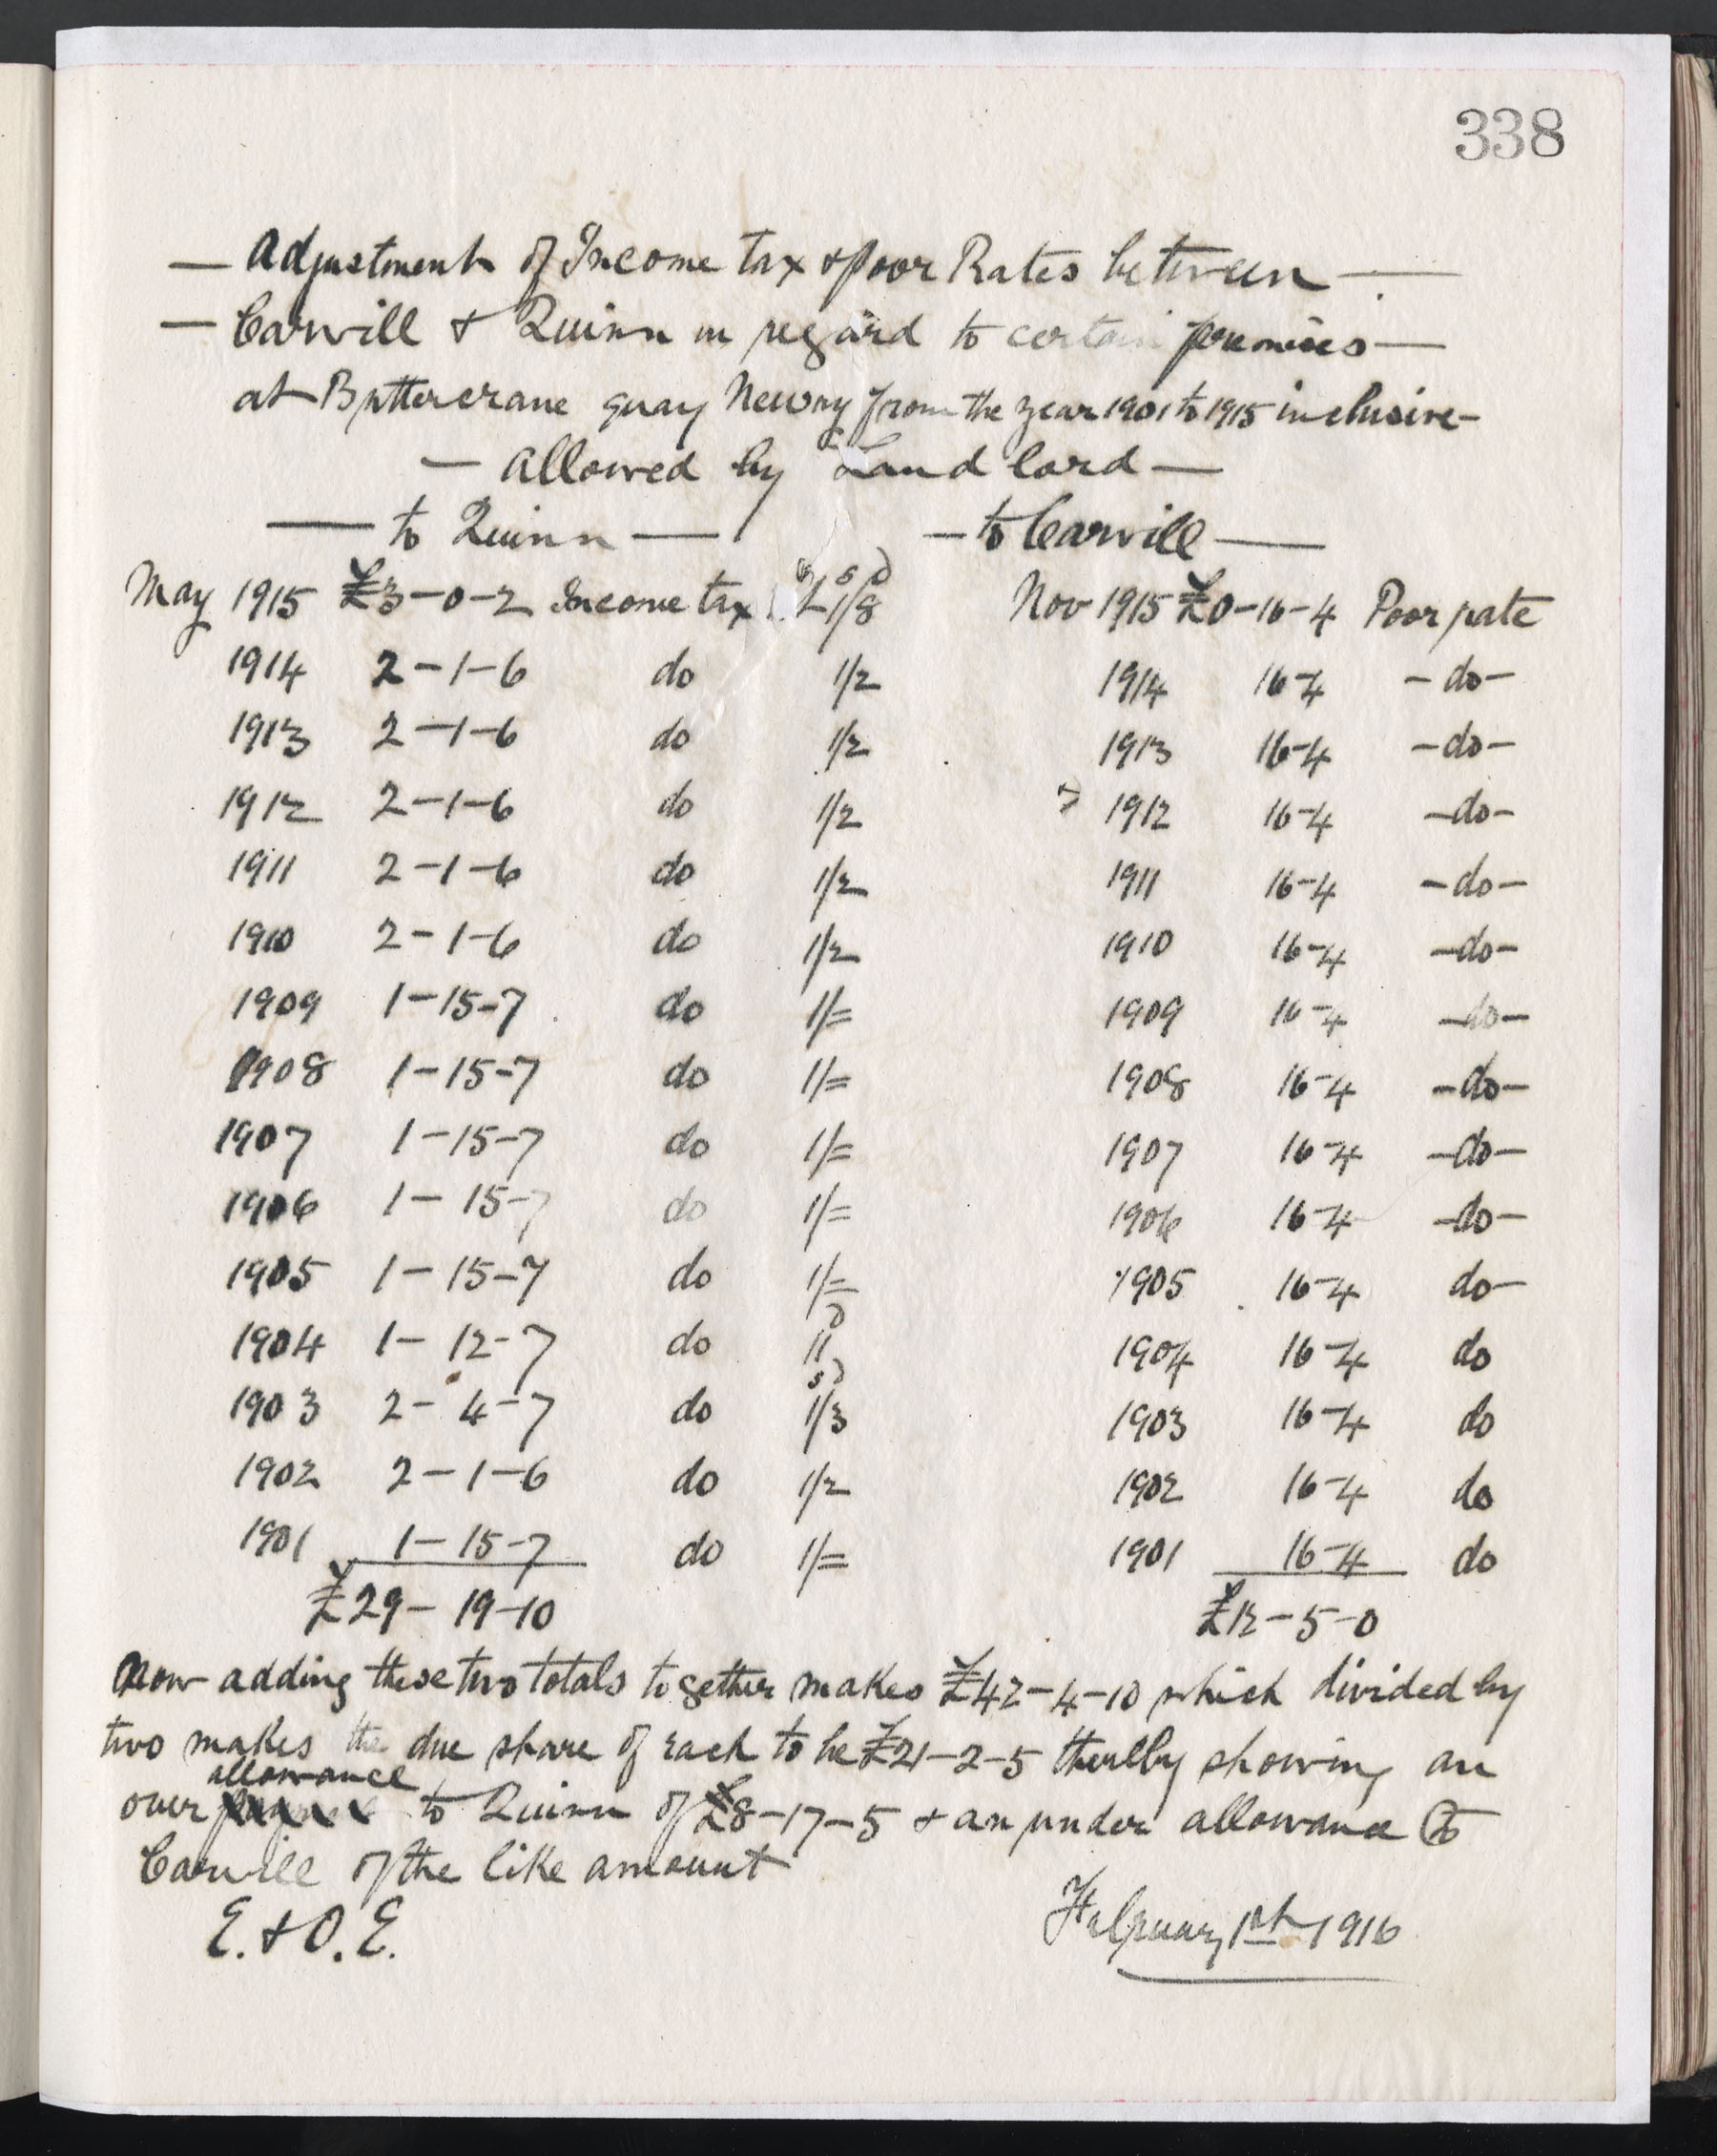 338
— Adjustment of Income tax & Poor Rates between —
— Carvill & Quinn in regard to certain premises —
at Buttercrane quay Newry from the year 1901 to 1915 inclusive —
— allowed by Land lord —
— to Quinn — — to Carvill —
May 1915 £3-0-2 Income tax £1/8 Nov 1915 £0-16-4 Poor rate
1914 2-1-6 do 1/2 1914 16-4 -do-
1913 2-1-6 do 1/2 1913 16-4 -do-
1912 2-1-6 do 1/2 1912 16-4 -do-
1911 2-1-6 do 1/2 1911 16-4 -do-
1910 2-1-6 do 1/2 1910 16-4 -do-
1909 1-15-7 do 1/= 1909 16-4 -do-
1908 1-15-7 do 1/= 1908 16-4 -do-
1907 1-15-7 do 1/= 1907 16-4 -do-
1906 1-15-7 do 1/= 1906 16-4 -do-
1905 1-15-7 do 1/= 1905 16-4 do-
1904 1-12-7 do 11 D 1904 16-4 do
1903 2-4-7 do 1/3 1903 16-4 do
1902 2-1-6 do 1/2 1902 16-4 do
1901 1-15-7 do 1/= 1901 16-4 do
£29-19-10 £12-5-0
Now adding these two totals together makes £42-4-10 which divided by
two makes the due share of each to be £21-2-5 thereby showing an
over allowance to Quinn of £8-17-5 & an under allowance to
Carvill of the like amount
E. & O. E. February 1st 1916